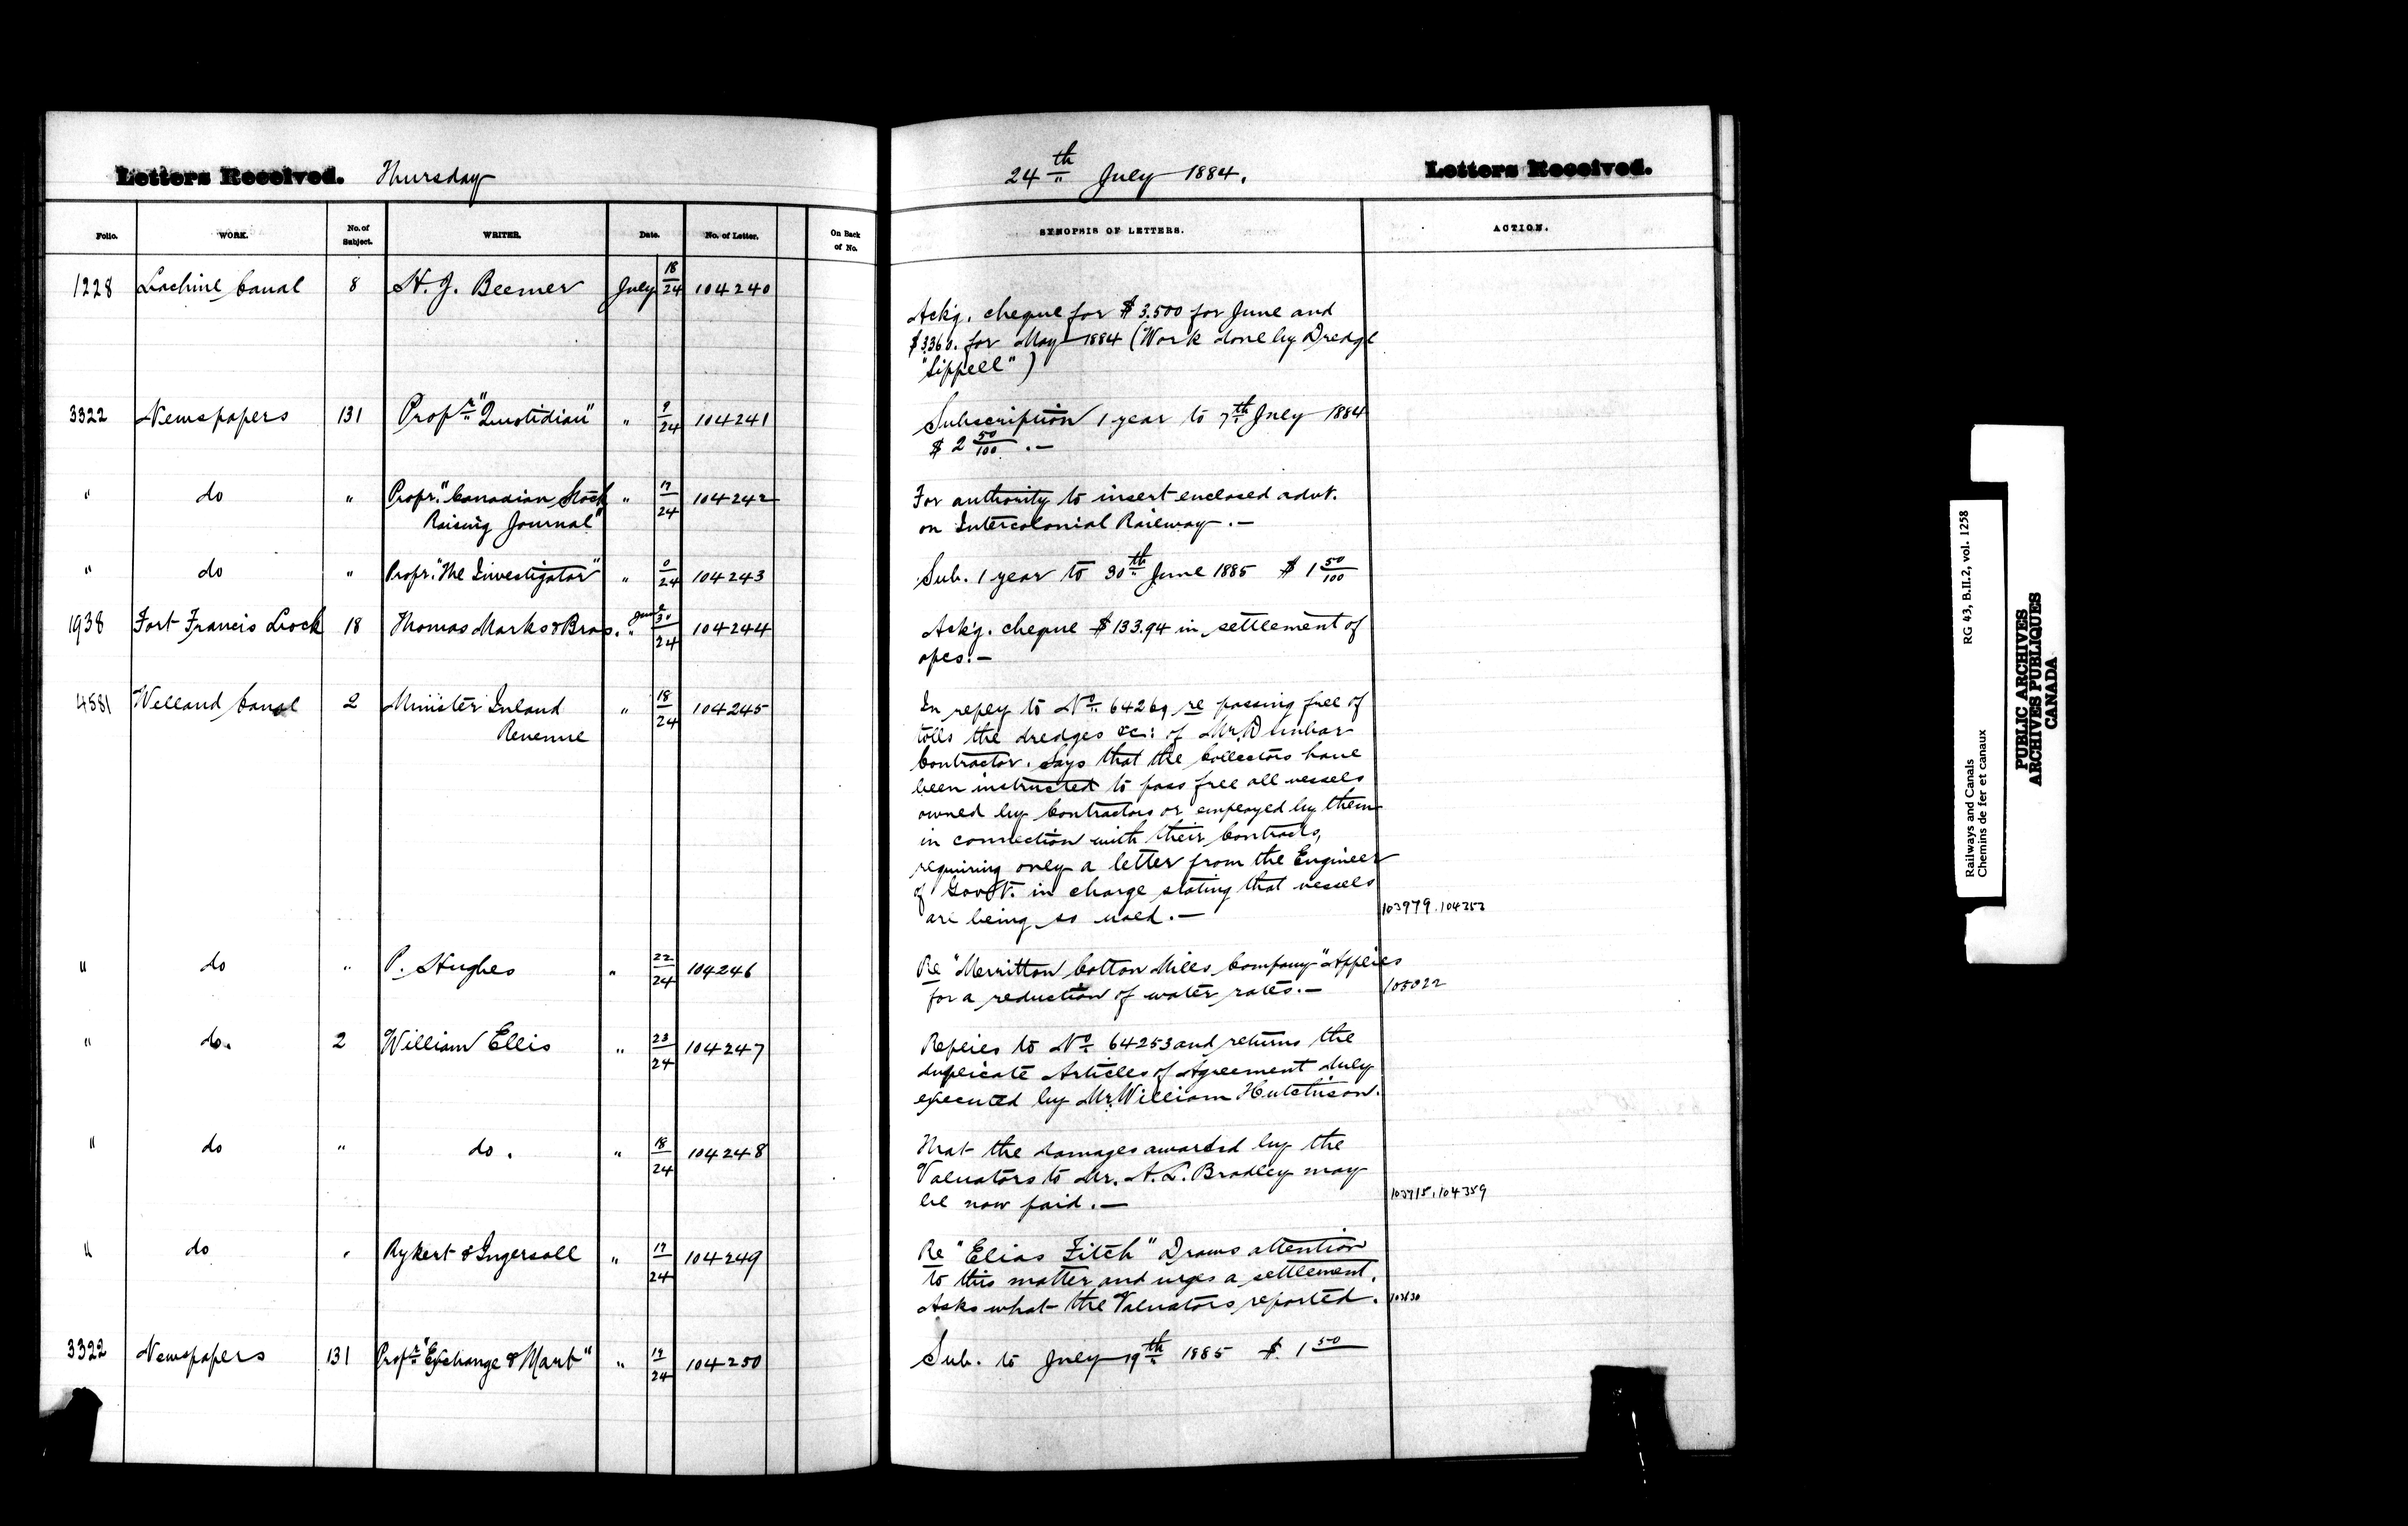 Letters Received. Thursday
24th July 1884. Letters Received.
Folio. WORK. No. of Subject. WRITER. Date. No. of Letter. On Back of No. SYNOPSIS OF LETTERS. ACTION.
1228 Lachine Canal 8 H. J. Beemer July 18/24 104240
Ackg. cheque for $3.500 for June and
$3360. for May 1884 (Work done by Dredge
"Sippell")
3322 Newspapers 131 Propr "Quotidian" " 9/24 104241 Subscription 1 year to 7th July 1884
$2 50/100 .—
" do " Propr. "Canadian Stock " 17/24 104242 For authority to insert enclosed advt.
Raising Journal" on Intercolonial Railway.—
" do " Propr. "The Investigator" " /24 104243 Sub. 1 year to 30th June 1885 $1 50/100
1938 Fort Francis Lock 18 Thomas Marks & Bros. June 30/24 104244 Ackg. cheque $133.94 in settlement of
apcs.—
4581 Welland Canal 2 Minister Inland " 18/24 104245 In reply to No 64269 re passing free of
Revenue tolls the dredges &c: of Mr. Dunbar
Contractor. Says that the Collectors have
been instructed to pass free all vessels
owned by Contractors or employed by them
in connection with their Contracts,
requiring only a letter from the Engineer
of Govt. in charge stating that vessels
are being so used.— 103979.104353
" do " P. Hughes " 22/24 104246 Re "Merritton Cotton Mills Company" Applies
for a reduction of water rates.— 105022
" do. 2 William Ellis " 23/24 104247 Replies to No 64253 and returns the
duplicate Articles of Agreement duly
executed by Mr. William Hutchison.
" do " do. " 18/24 104248 That the damages awarded by the
Valuators to Mr. A. L. Bradley may
be now paid.— 103915.104359
" do " Rykert & Ingersoll " 17/24 104249 Re "Elias Fitch" Draws attention
to this matter and urges a settlement.
Asks what the Valuators reported.
3322 Newspapers 131 Propr "Exchange & Mart" " 19/24 104250 Sub. to July 19th 1885 $1 50
Railways and Canals RG 43, B.II.2, vol. 1258
Chemins de fer et canaux
PUBLIC ARCHIVES
ARCHIVES PUBLIQUES
CANADA